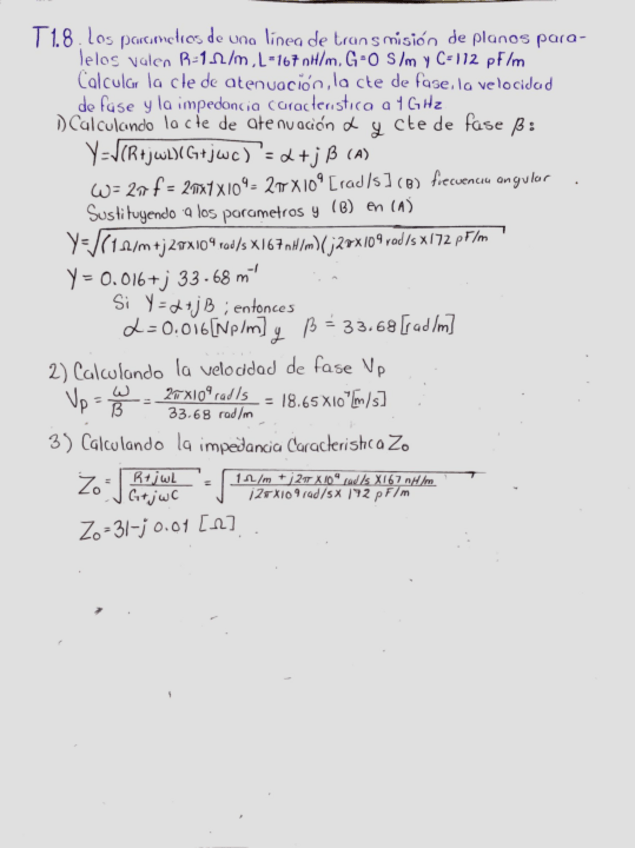 T1.8. Los parametros de una línea de transmisión de planos para-
lelos valen R=1Ω/m, L=167nH/m, G=0 S/m y C=172 pF/m
Calcular la cte de atenuación, la cte de fase, la velocidad
de fase y la impedancia caracteristica a 1GHz
1) Calculando la cte de atenuación α y cte de fase β:
γ=√(R+jωL)(G+jωC) = α+jβ (A)
ω=2πf=2πx1x10⁹=2πx10⁹[rad/s] (B) frecuencia angular.
Sustituyendo a los parametros y (B) en (A)
γ=√(1Ω/m+j2πx10⁹rad/sX167nH/m)(j2πx10⁹rad/sX172 pF/m
γ=0.016+j 33.68 m⁻¹
Si γ=α+jβ; entonces
α=0.016[Np/m] y β=33.68[rad/m]
2) Calculando la velocidad de fase Vp
Vp = ω/β = 2πx10⁹rad/s / 33.68 rad/m = 18.65X10⁷[m/s]
3) Calculando la impedancia Caracteristica Z₀
Z₀=√R+jωL / G+jωC = √1Ω/m +j2πX10⁹ rad/s X167 nH/m / j2πX10⁹rad/sX 172 pF/m
Z₀=31-j 0.01 [Ω]